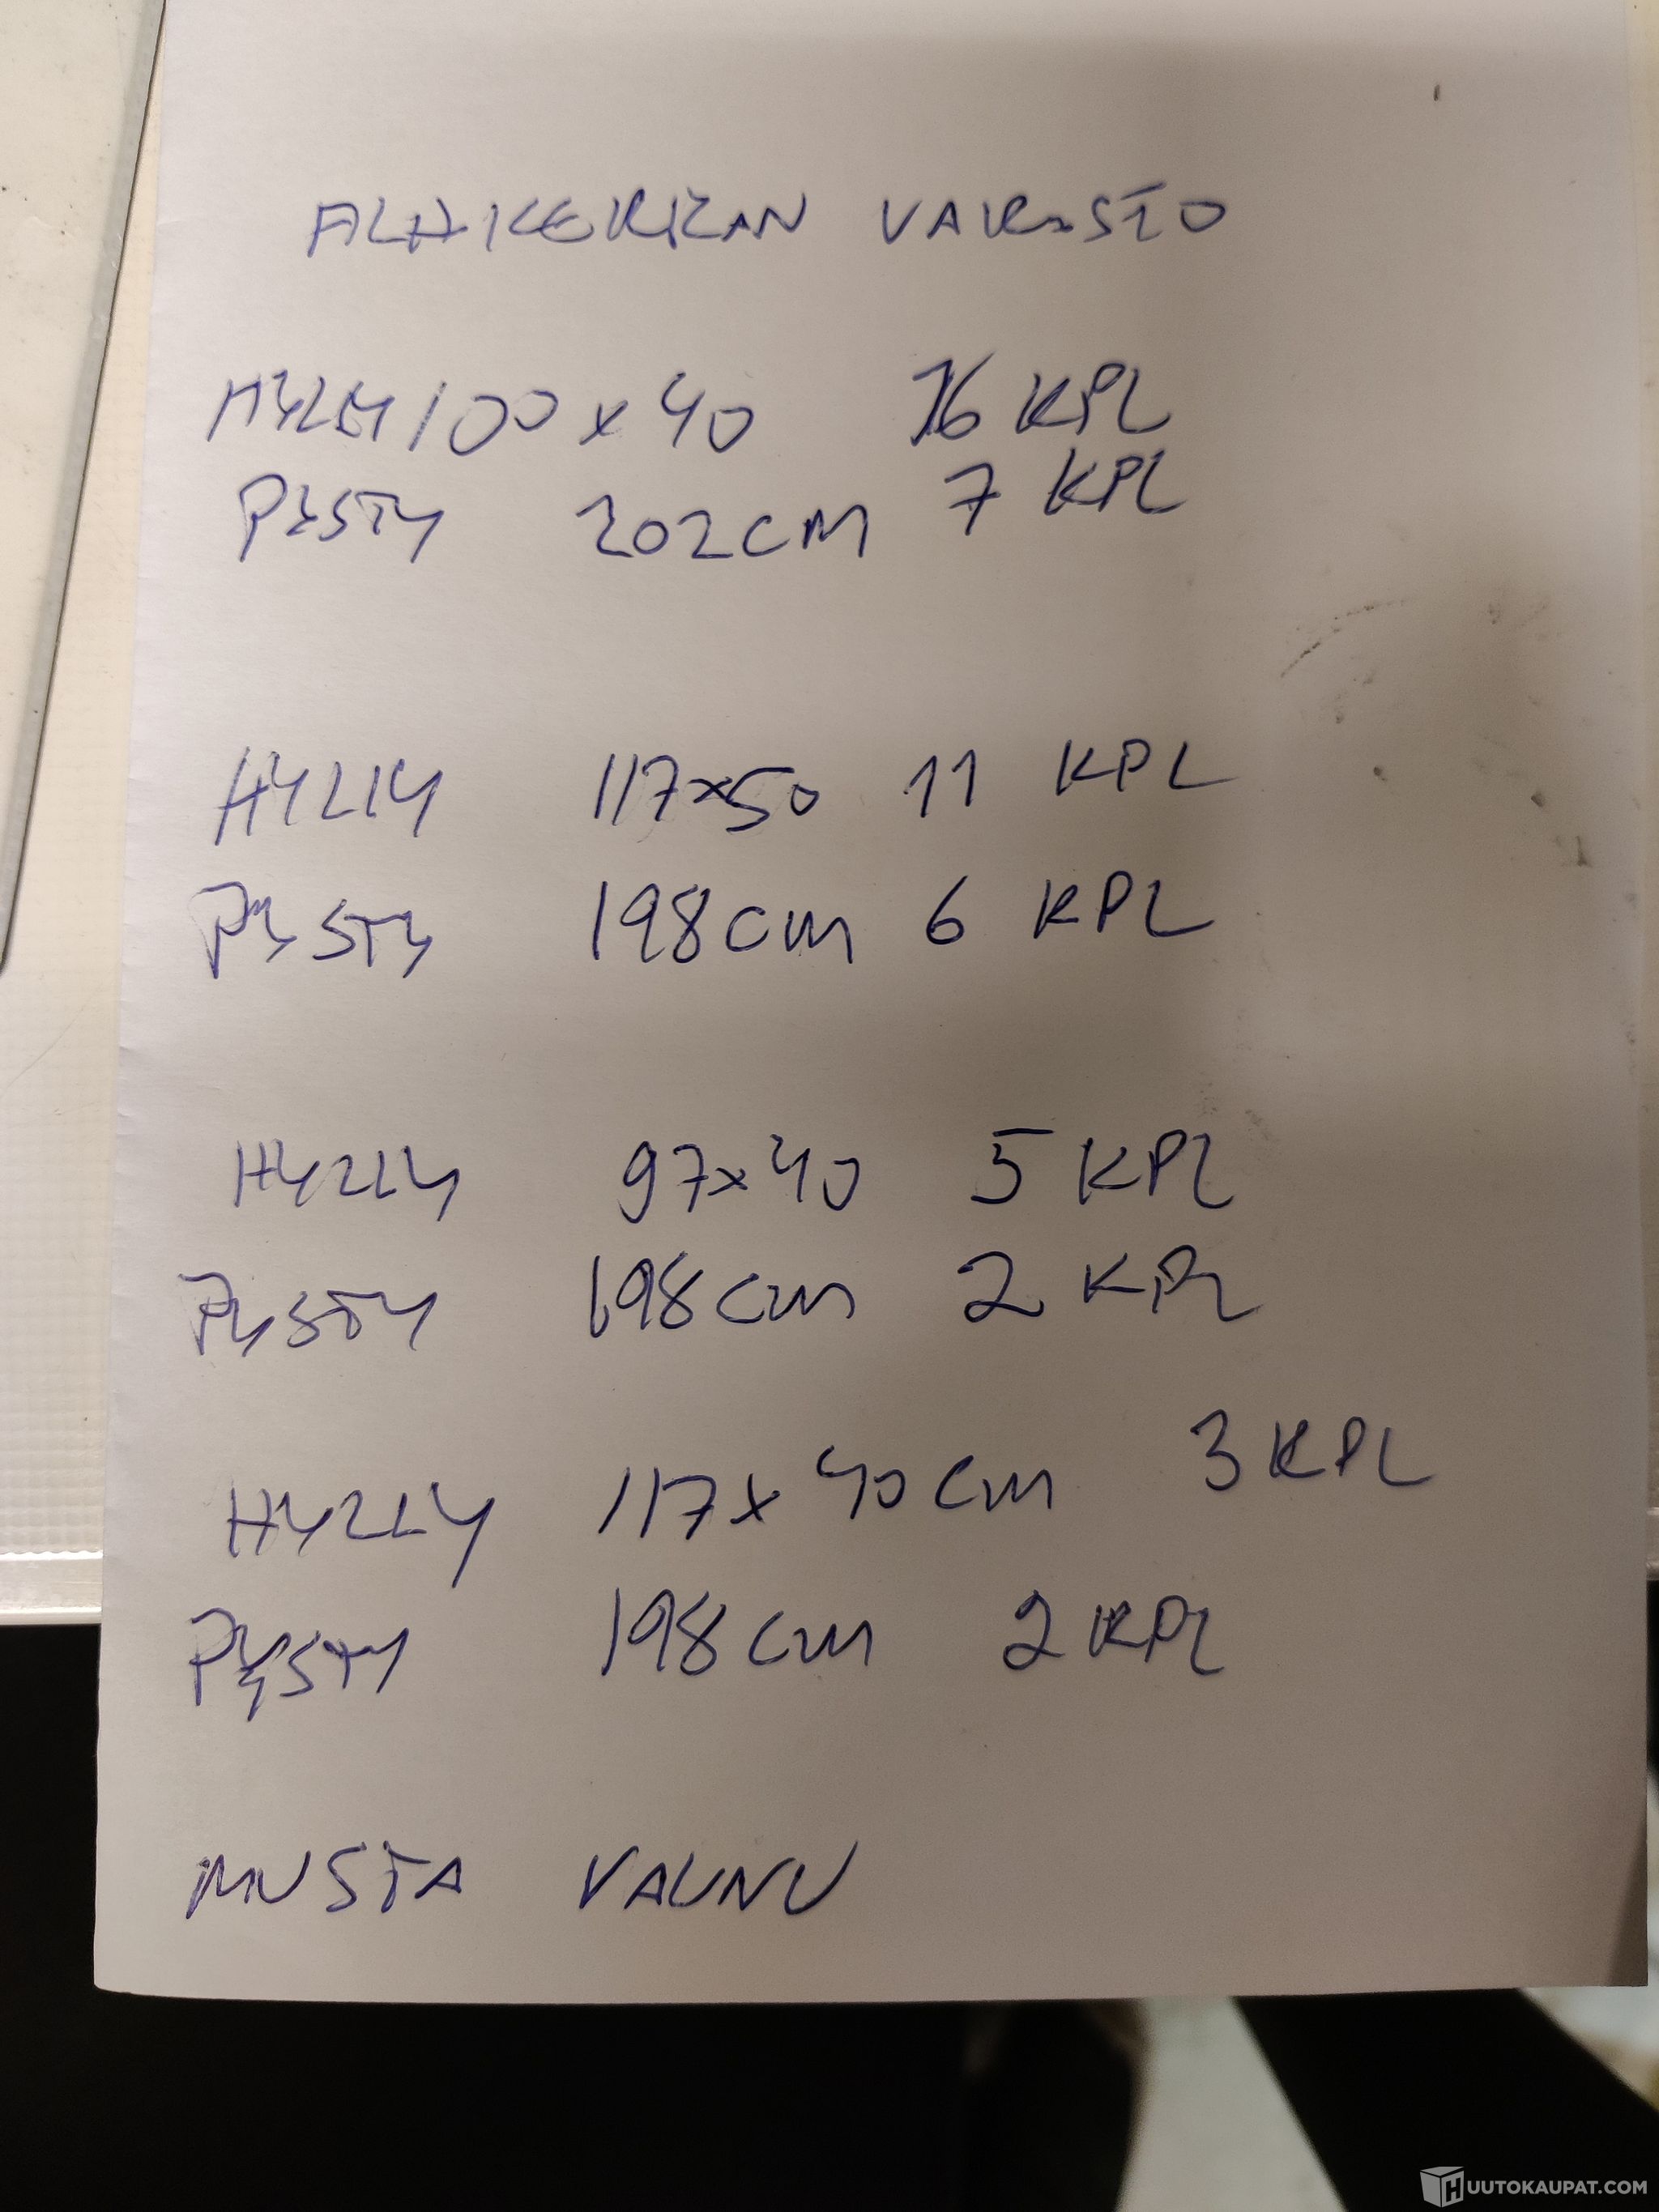 ALAKERRAN VARASTO
HYLLY 100x40 16 KPL
PYSTY 202CM 7 KPL
HYLLY 117x50 11 KPL
PYSTY 198CM 6 KPL
HYLLY 97x40 5 KPL
PYSTY 198CM 2 KPL
HYLLY 117x40CM 3 KPL
PYSTY 198CM 2 KPL
MUSTA VAUNU
HUUTOKAUPAT.COM